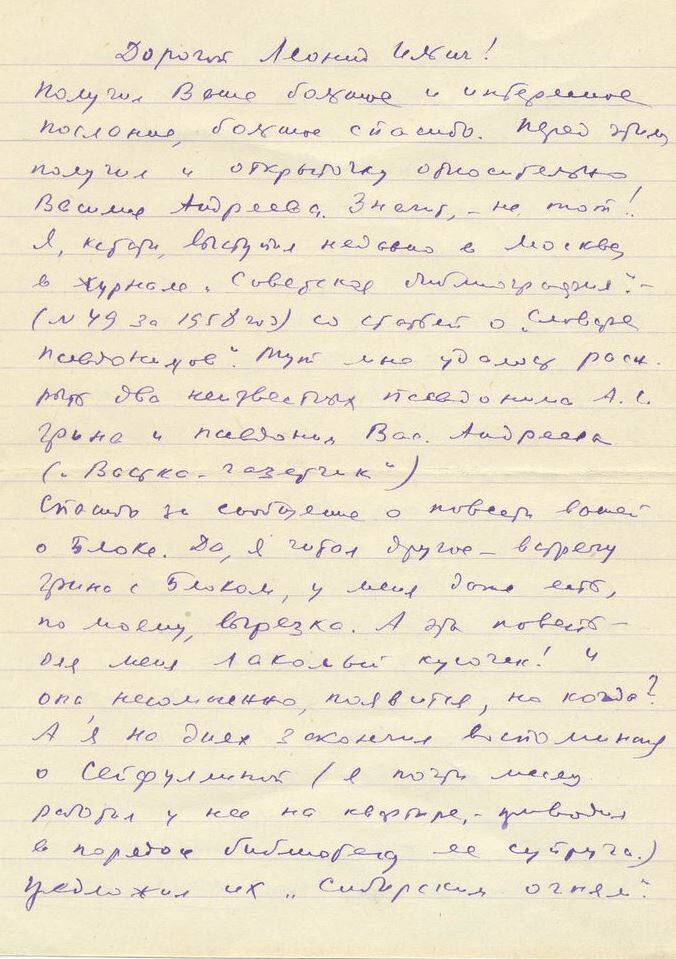 Дорогой Леонид Ильич!
Получил Ваше большое и интересное
послание, большое спасибо. Перед этим
получил и открыточку относительно
Василия Андреева. Значит, – не тот!
Я, кстати, выступил недавно в Москве
в журнале „Советская библиография“ –
(№ 49 за 1958 год) со статьей о „Словаре
псевдонимов“. Тут мне удалось раск-
рыть два неизвестных псевдонима А.С.
Грина и псевдоним Вас. Андреева
(„Васька-газетчик“)
Спасибо за сообщение о повести вашей
о Блоке. Да, я читал другое – встречу
Грина с Блоком, у меня даже есть,
по моему, вырезка. А эта повесть –
для меня лакомый кусочек! И
она, несомненно, появится, но когда?
А я на днях закончил воспоминания
о Сейфуллиной (я почти месяц
работал у нее на квартире, – приводил
в порядок библиотеку ее супруга.)
Предложил их „Сибирским огням“.